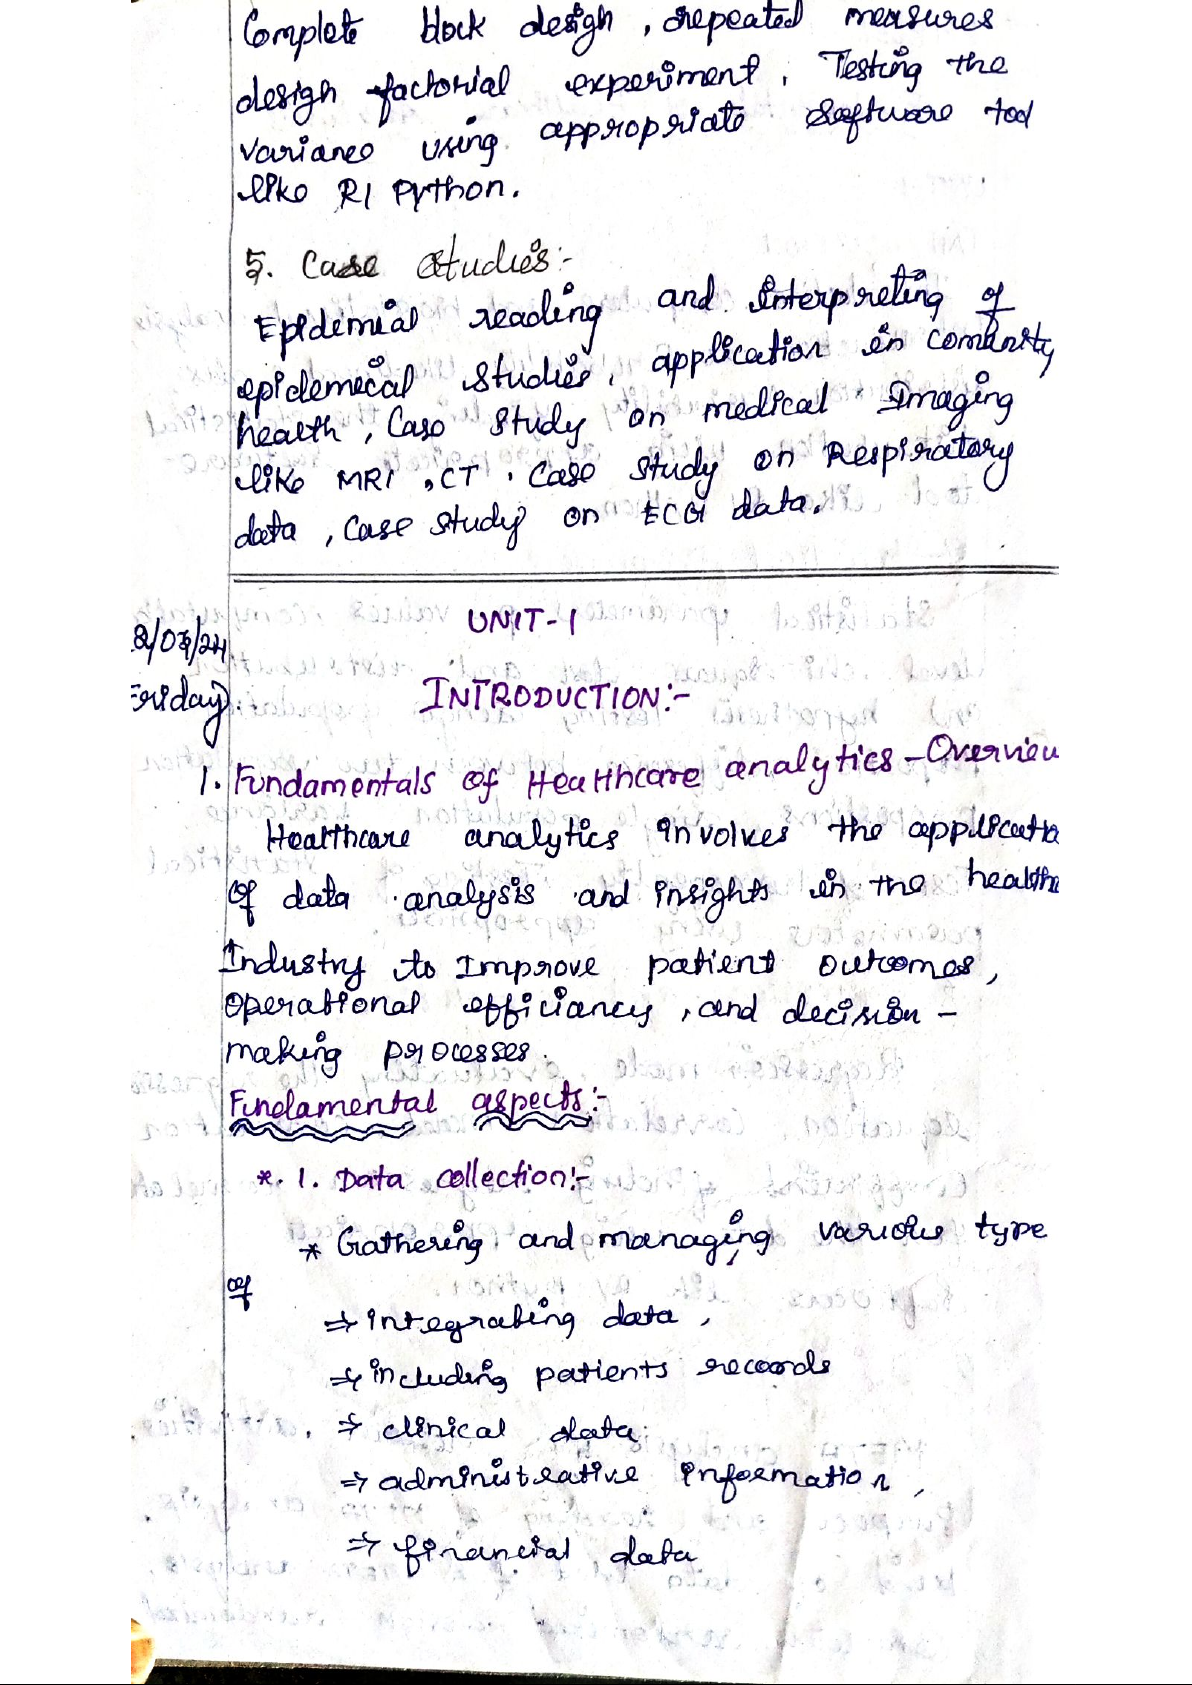 Complete block design, repeated measures
design factorial experiment, Testing the
variance using appropriate software tool
like R/ Python.
5. Case Studies:-
Epidemial reading and interpreting of
epidemecal studies, application in comunity
health, Case study on medical Imaging
like MRI, CT. Case study on Respiratory
data, Case study on ECG data.
UNIT-1
(Friday)
INTRODUCTION:-
1. Fundamentals of Healthcare analytics - Overview
Healthcare analytics involves the applicatio
of data analysis and insights in the health
Industry to Improve patient outcomes,
operational efficiancy, and decision -
making processes.
Fundamental aspects:-
*. 1. Data collection:-
* Gathering and managing various type
of
⇒ integrating data,
⇒ including patients records
⇒ clinical data
⇒ administrative information,
⇒ financial data